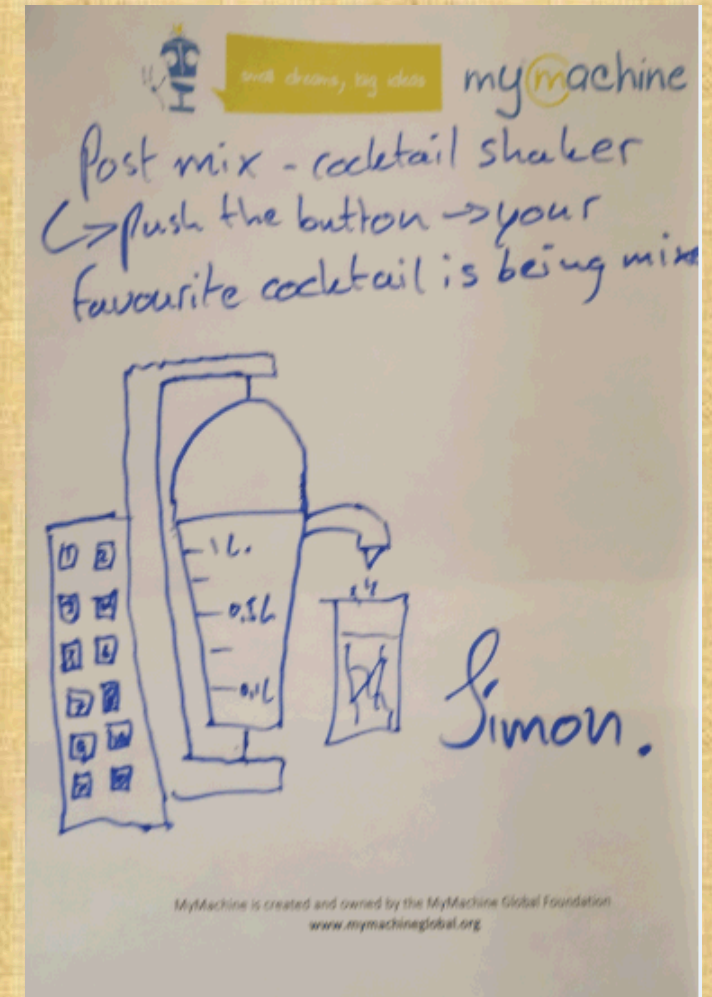 small dreams, big ideas
mymachine
Post mix - cocktail shaker
↳ push the button → your
favourite cocktail is being mixe
1 2
3 4
1L.
5 6
0,5L
7 8
9 10
0,1L
Simon.
MyMachine is created and owned by the MyMachine Global Foundation
www.mymachineglobal.org